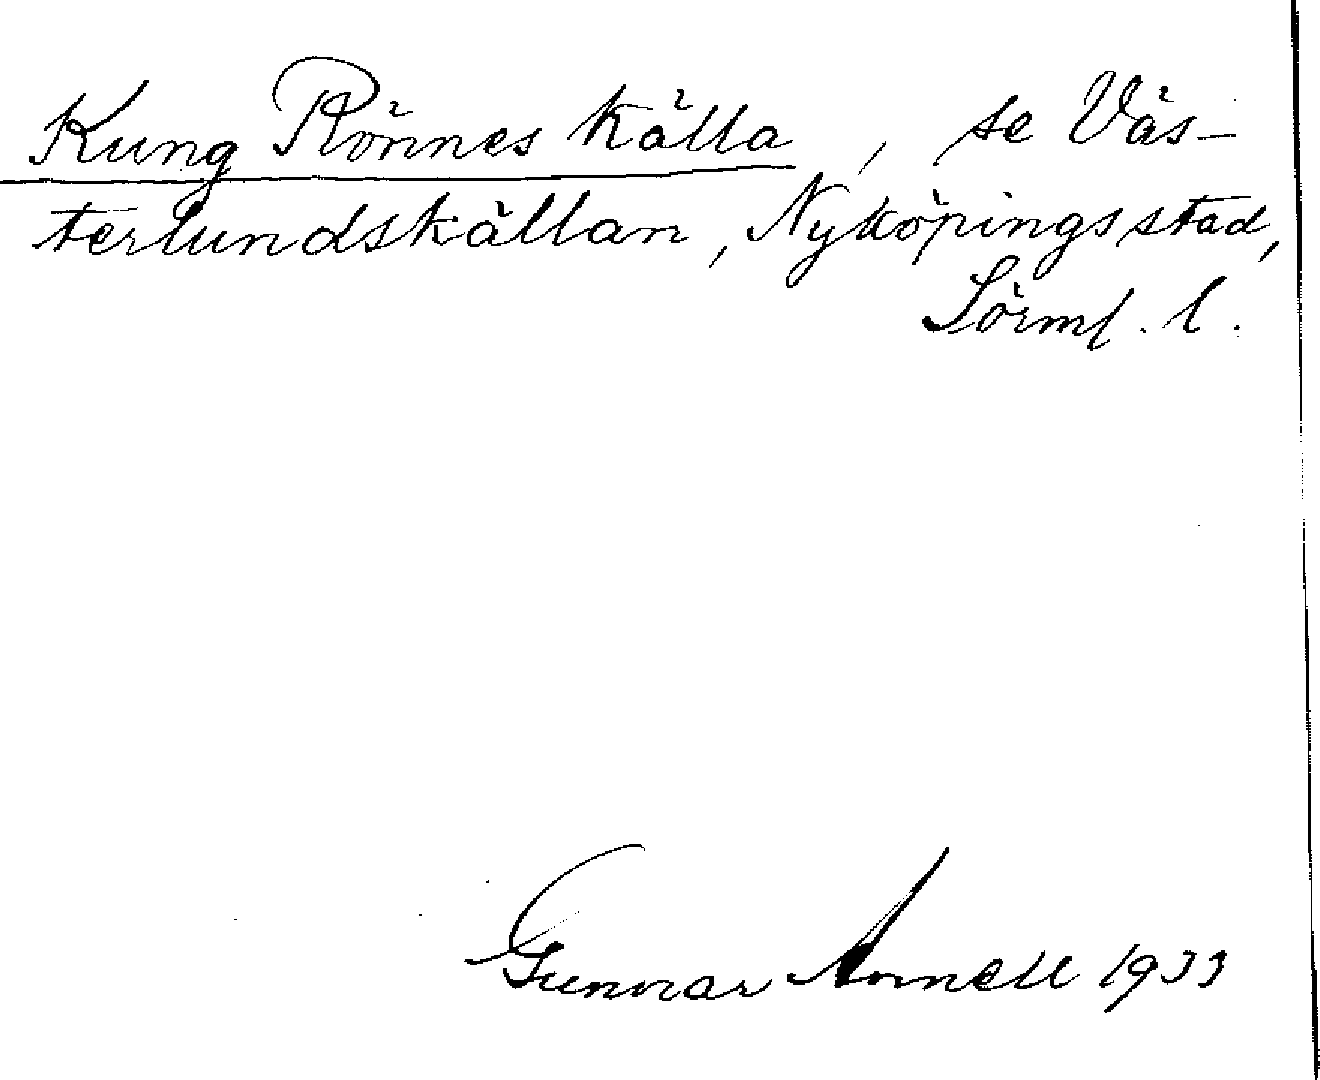 Kung Rönnes källa, se Väs-
terlundskällan, Nyköpings stad,
Sörml. l.
Gunnar Annell 1933